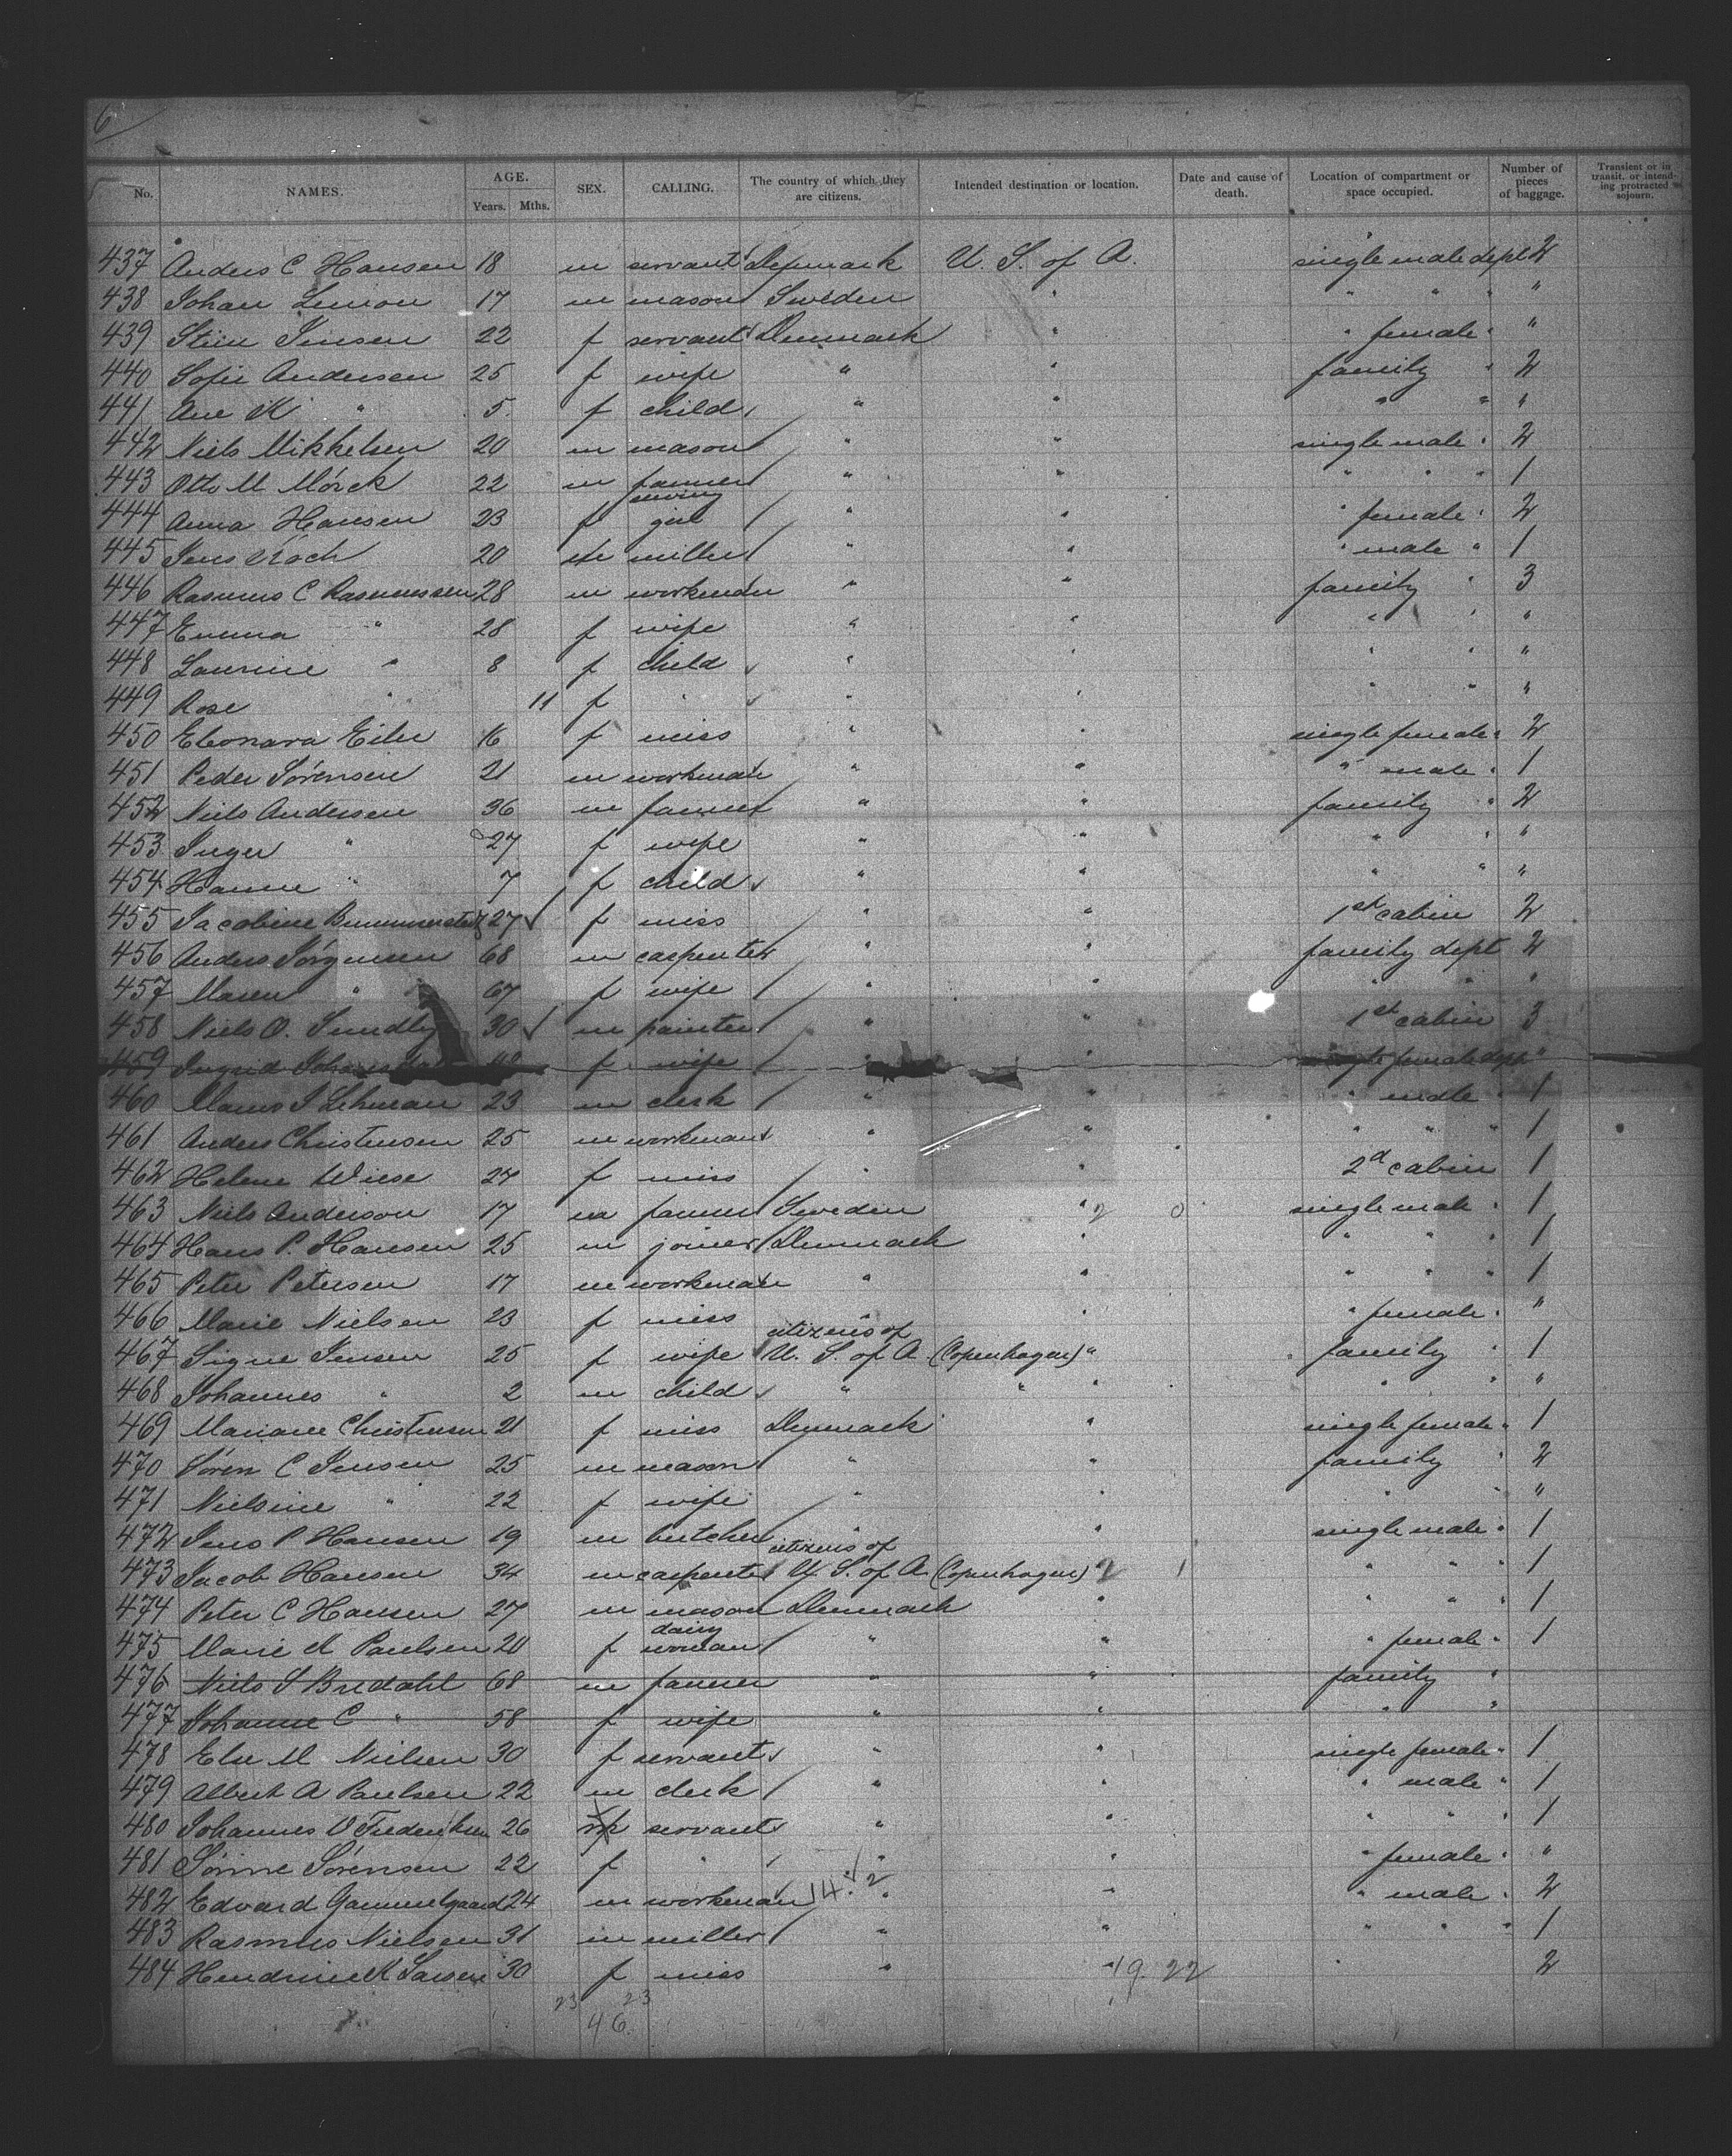 6
No. NAMES. AGE. Years. Mths. SEX. CALLING. The country of which they are citizens. Intended destination or location. Date and cause of death. Location of compartment or space occupied. Number of pieces of baggage. Transient or in transit, or intending protracted sojourn.
437 Anders C Hansen 18 m servant Denmark U. S. of A. single male dept 2
438 Johan Lemon 17 m mason Sweden " " " " "
439 Stine Jensen 22 f servant Denmark " " female " "
440 Sofie Andersen 25 f wife " " family " 2
441 Ane K " 5 f child " " " " "
442 Niels Mikkelsen 20 m mason " " single male " 2
443 Otto M Mörck 22 m farmer " " " " " 1
444 Anna Hansen 23 f sewing girl " " " female " 2
445 Jens Koch 20 m miller " " " male " 1
446 Rasmus C Rasmussen 28 m workman " " family " 3
447 Emma " 28 f wife " " " " "
448 Laurine " 8 f child " " " " "
449 Rose " 11 f " " " " " "
450 Eleonara Eiler 16 f miss " " single female " 2
451 Peder Sörensen 21 m workman " " " male " 1
452 Niels Andersen 36 m farmer " " family " 2
453 Inger " 27 f wife " " " " "
454 Hanne " 7 f child " " " " "
455 Jacobine 27 f miss " " 1st cabin 2
456 Anders Jörgensen 68 m carpenter " " family dept 2
457 Maren " 67 f wife " " " " "
458 Niels O. 30 m painter " " 1st cabin 3
459 Ingrid f wife " " single female dept "
460 Marius J Lehman 23 m clerk " " " male " 1
461 Anders Christensen 25 m workman " " " " " 1
462 Helene Wiese 27 f miss " " 2d cabin 1
463 Niels Anderson 17 m farmer Sweden " 2 0 single male " 1
464 Hans P. Hansen 25 m joiner Denmark " " " " 1
465 Peter Petersen 17 m workman " " " " " 1
466 Marie Nielsen 23 f miss " " " female " "
467 Signe Jensen 25 f wife citizens of U. S. of A. (Copenhagen) " family " 1
468 Johannes " 2 m child " " " " " "
469 Mariane Christensen 21 f miss Denmark " single female " 1
470 Sören C Jensen 25 m mason " " family " 2
471 Nielsine " 22 f wife " " " "
472 Jens P Hansen 19 m butcher " " single male " 1
473 Jacob Hansen 34 m carpenter citizens of U. S. of A. (Copenhagen) 2 1 " " " 1
474 Peter C Hansen 27 m mason Denmark " " " " 1
475 Marie K Paulsen 20 f dairy woman " " " female " 1
476 Niels S Bredahl 68 m farmer " " family "
477 Johanne C " 58 f wife " " " "
478 Else M Nielsen 30 f servant " " single female " 1
479 Albert A Paulsen 22 m clerk " " " male " 1
480 Johannes O Frederiksen 26 m servant " " " " " 1
481 Sörine Sörensen 22 f " " " " female " "
482 Edvard Gammelgaard 24 m workman 14. 2 " " " male " 2
483 Rasmus Nielsen 31 m miller " " " " " 1
484 Hendrine K Larsen 30 f miss " " 19. 22 2
23 23
46.